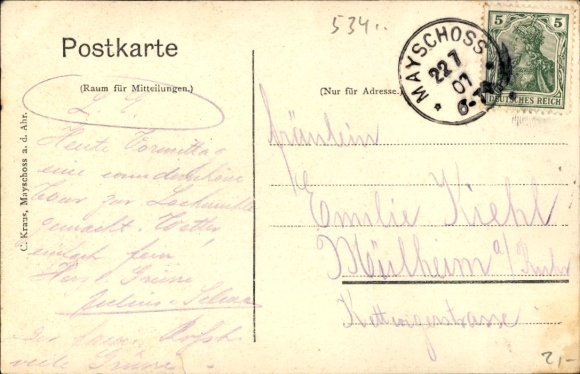 534..
Postkarte
(Raum für Mitteilungen.)
(Nur für Adresse.)
MAYSCHOSS
22 7
07
5
5
DEUTSCHES REICH
C. Kraus, Mayschoss a. d. Ahr.
L. E.
Heute Vormittag
eine wunderschöne
Tour zur Lochmühle
gemacht. Wetter
einfach fein!
Herzl. Grüsse
Julius
viele Grüsse
Fräulein
Emilie Kiehl
Mülheim a/Ruhr
Kettwigerstrasse
2,-